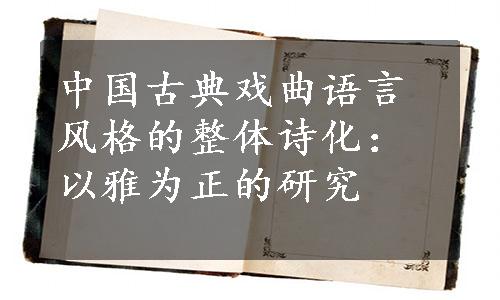 中国古典戏曲语言
风格的整体诗化：
以雅为正的研究